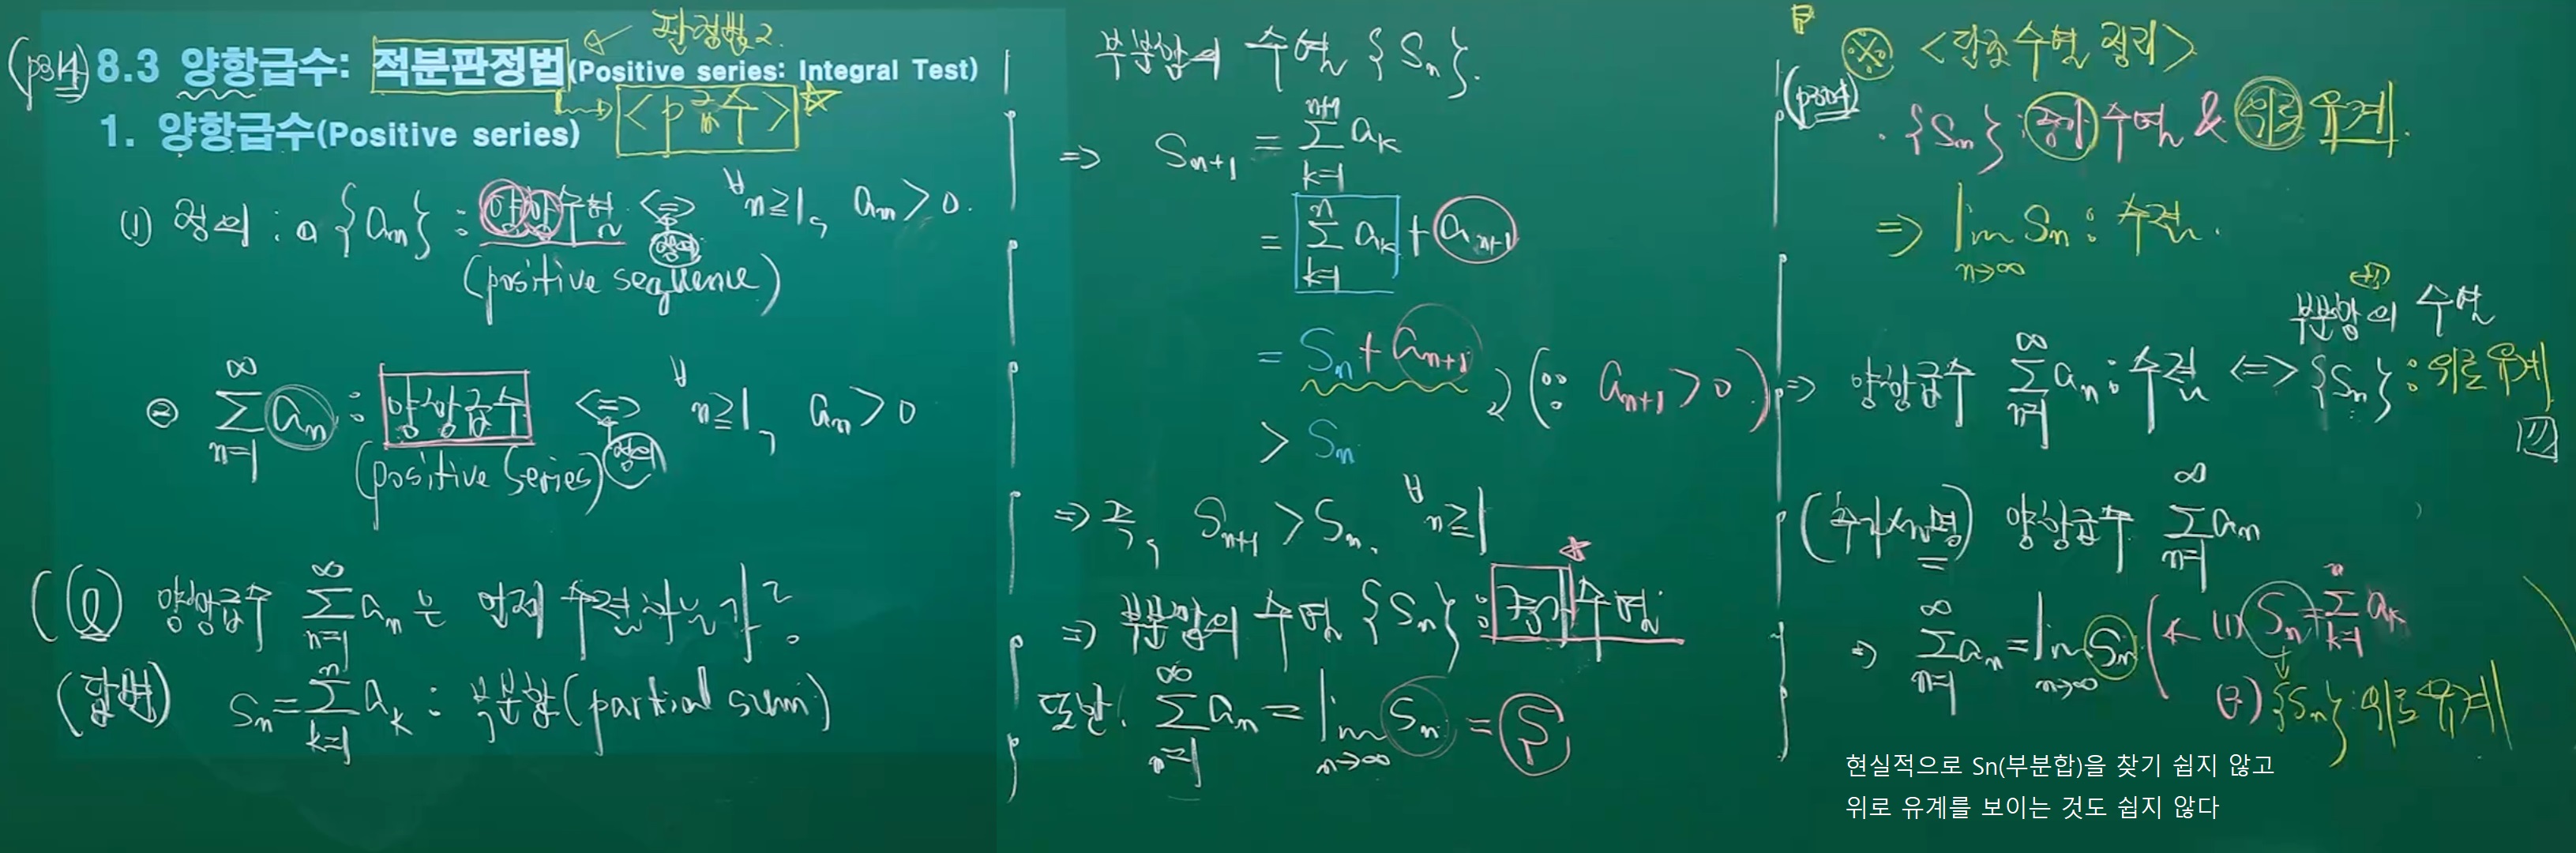 (p314) 8.3 양항급수: 적분판정법(Positive series: Integral Test)
← 판정법 2.
→ <p급수> ☆
1. 양항급수(Positive series)
(1) 정의 : ① {aₙ} : 양항수열 ⟺ ∀n≥1, aₙ > 0.
정의
(positive sequence)
② ∑_{n=1}^{∞} aₙ : 양항급수 ⟺ ∀n≥1, aₙ > 0
(positive series) 정의
(Q) 양항급수 ∑_{n=1}^{∞} aₙ은 언제 수렴하는가?
(답변) Sₙ = ∑_{k=1}^{n} aₖ : 부분합(partial sum)
부분합의 수열 {Sₙ}.
⇒ Sₙ₊₁ = ∑_{k=1}^{n+1} aₖ
= ∑_{k=1}^{n} aₖ + aₙ₊₁
= Sₙ + aₙ₊₁
> Sₙ (∵ aₙ₊₁ > 0)
⇒ 즉, Sₙ₊₁ > Sₙ. ∀n≥1
⇒ 부분합의 수열 {Sₙ} : 증가수열
또한. ∑_{n=1}^{∞} aₙ = lim_{n→∞} Sₙ = S
※ <단조수렴정리>
(p304)
· {Sₙ} : 증가수열 & 위로 유계.
⇒ lim_{n→∞} Sₙ : 수렴.
부분합의 수열
⇒ 양항급수 ∑_{n=1}^{∞} aₙ : 수렴 ⟺ {Sₙ} : 위로 유계
(추가설명) 양항급수 ∑_{n=1}^{∞} aₙ
⇒ ∑_{n=1}^{∞} aₙ = lim_{n→∞} Sₙ (← (1) Sₙ = ∑_{k=1}^{n} aₖ
(2) {Sₙ} : 위로 유계
현실적으로 Sn(부분합)을 찾기 쉽지 않고
위로 유계를 보이는 것도 쉽지 않다